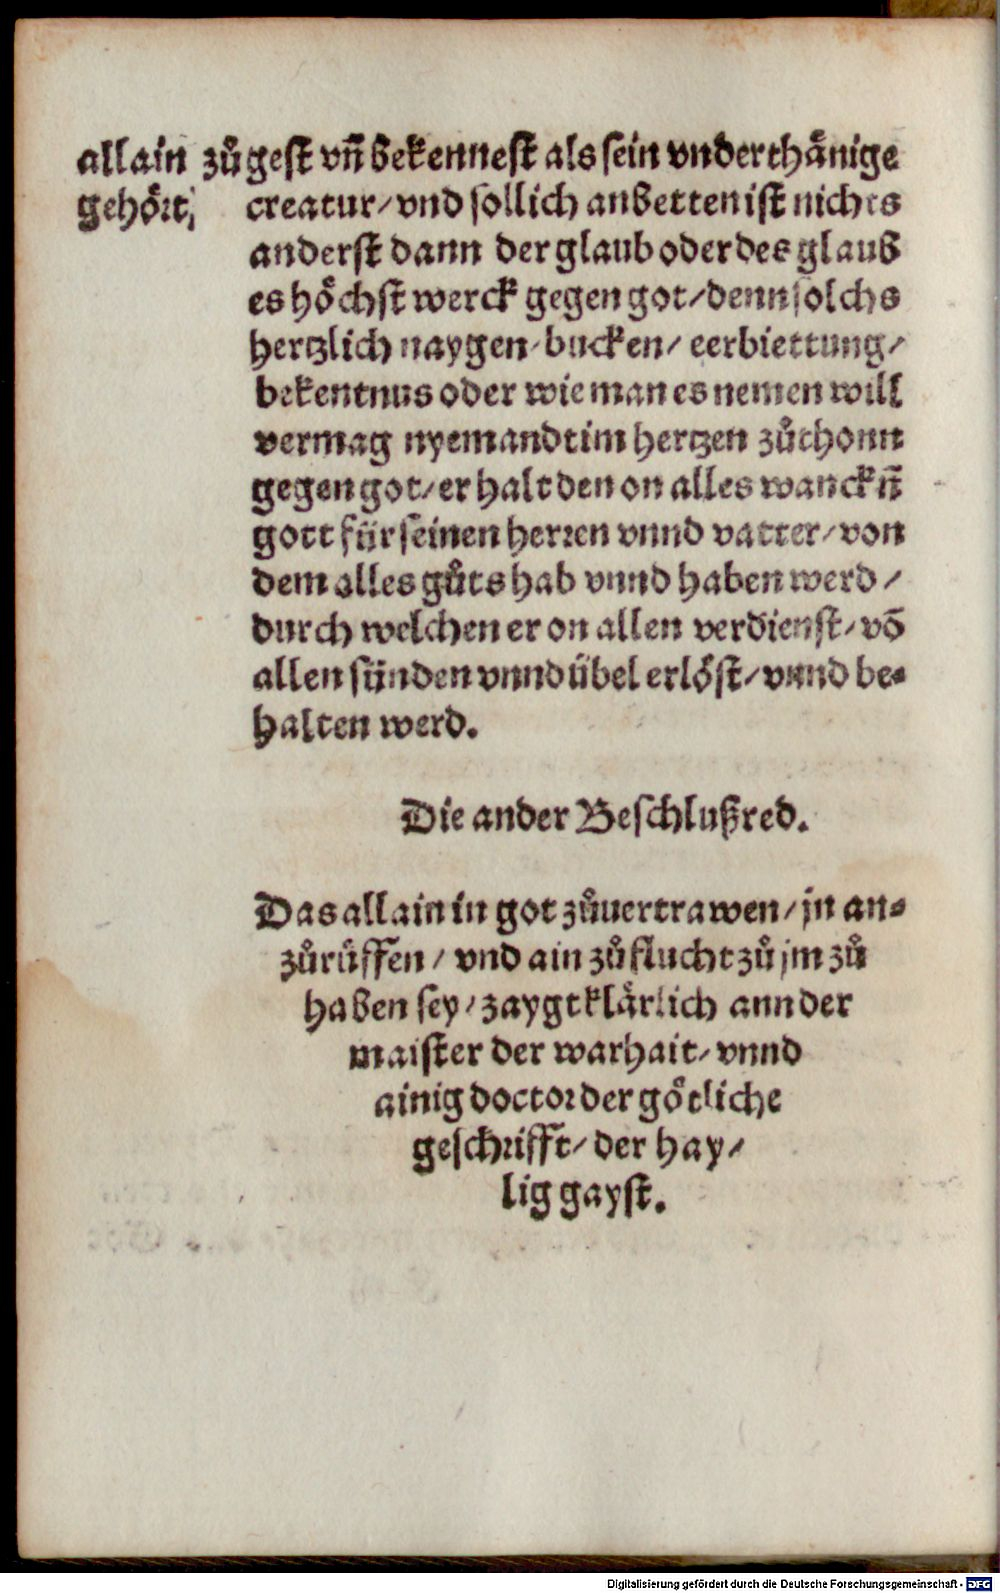 allain zů
gehört,
gest vñ bekennest als sein vnderthånige
creatur/ vnd sollich anbetten ist nichts
anderst dann der glaub oder des glaub
es höchst werck gegen got/ denn solchs
hertzlich naygen/ bucken/ eerbiettung/
bekentnus oder wie man es nemen will
vermag nyemandt im hertzen zůthonn
gegen got/ er halt den on alles wanckñ
gott für seinen herren vnnd vatter/ von
dem alles gůts hab vnnd haben werd/
durch welchen er on allen verdienst/ võ
allen sünden vnnd übel erlöst/ vnnd be-
halten werd.
Die ander Beschlußred.
Das allain in got zůuertrawen/ jn an-
zůrüffen/ vnd ain zůflucht zů jm zů
haben sey/ zaygt klärlich ann der
maister der warhait/ vnnd
ainig doctor der götliche
geschrifft/ der hay/
lig gayst.
Digitalisierung gefördert durch die Deutsche Forschungsgemeinschaft - DFG